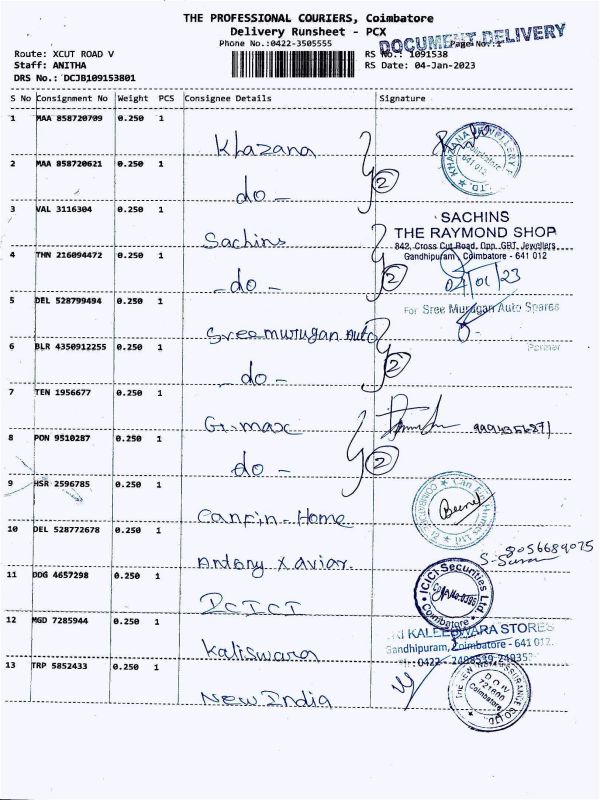 THE PROFESSIONAL COURIERS, Coimbatore
Delivery Runsheet - PCX
Phone No.:0422-3505555
DOCUMENT DELIVERY
Page No.:1
Route: XCUT ROAD V
RS No.: 1091538
Staff: ANITHA
RS Date: 04-Jan-2023
DRS No.: DCJB109153801
S No Consignment No Weight PCS Consignee Details Signature
1 MAA 858720709 0.250 1
Khazana
KHAZANA JEWELLERY P. LTD. Coimbatore 641 012
2 MAA 858720621 0.250 1
do - 2
3 VAL 3116304 0.250 1
Sachins
SACHINS
THE RAYMOND SHOP
842, Cross Cut Road, Opp. GRT Jewellers,
Gandhipuram, Coimbatore - 641 012
4 THN 216094472 0.250 1
- do - 2
04/01/23
5 DEL 528799494 0.250 1
Sree murugan Auto
For Sree Murugan Auto Spares
6 BLR 4350912255 0.250 1
- do - 2
Partner
7 TEN 1956677 0.250 1
G-max
8 PON 9510287 0.250 1
do - 2
9 HSR 2596785 0.250 1
Canfin - Home
Can Fin Homes Ltd COIMBATORE
10 DEL 528772678 0.250 1
Antony Xaviar.
8056689075
11 DDG 4657298 0.250 1
ICICI Securities Ltd. Coimbatore
12 MGD 7285944 0.250 1
Kaliswara
SRI KALEESWARA STORES
Gandhipuram, Coimbatore - 641 012.
13 TRP 5852433 0.250 1
New India
THE NEW INDIA ASSURANCE CO LTD D.O.IV 721600 Coimbatore